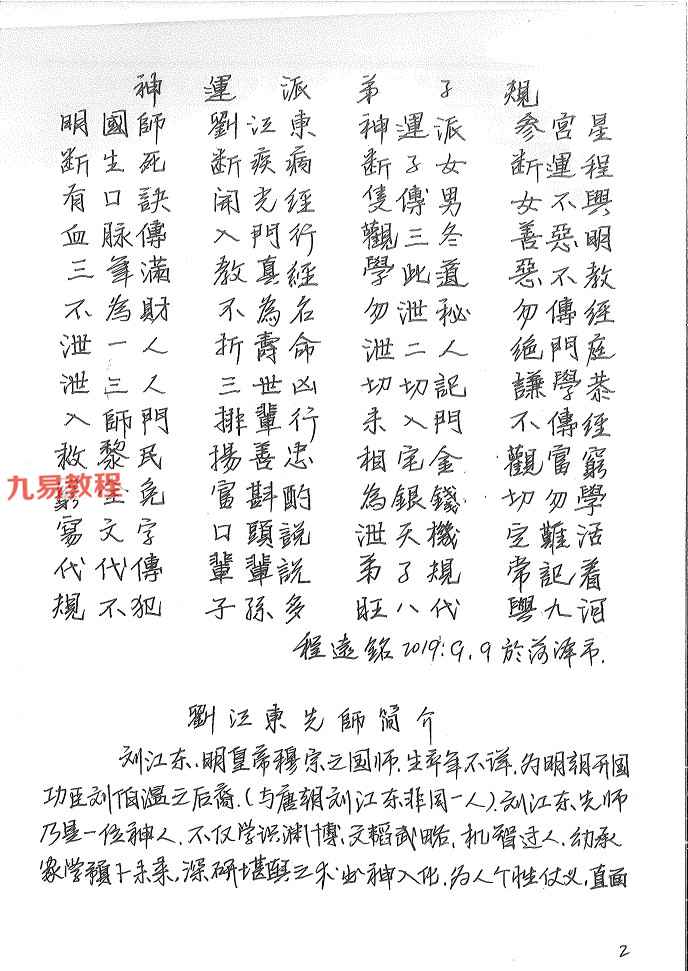 神運派弟子規
明國師 劉江東 神運派 參宮星
断生死 断疾病 断子女 断運程
有口訣 開光經 隻傳男 女不與
血脉傳 入門行 觀三冬 善惡明
三年滿 教真經 學此道 惡不教
不為財 不為名 勿泄秘 勿傳經
泄一人 折壽命 泄二人 絶門庭
泄三人 三世凶 切切記 謙學恭
入師門 排輩行 未入門 不傳經
救黎民 揚善忠 相宅金 觀富窮
九易教程
免 富斟酌 為銀錢 切勿學
寫文字 口頭說 泄天機 定難活
代代傳 輩輩說 弟子規 常記着
規不犯 子孫多 旺八代 與九河
程遠銘2019.9.9於菏泽市.
劉江東先師簡介
刘江东,明皇帝穆宗之国师.生卒年不详.为明朝开国
功臣刘伯温之后裔.(与唐朝刘江东非同一人).刘江东先师
乃是一位神人.不仅学识渊博.文韬武略.机智过人.幼承
家学預卜未来,深研堪輿之术出神入化.为人个性仗义,直面
2